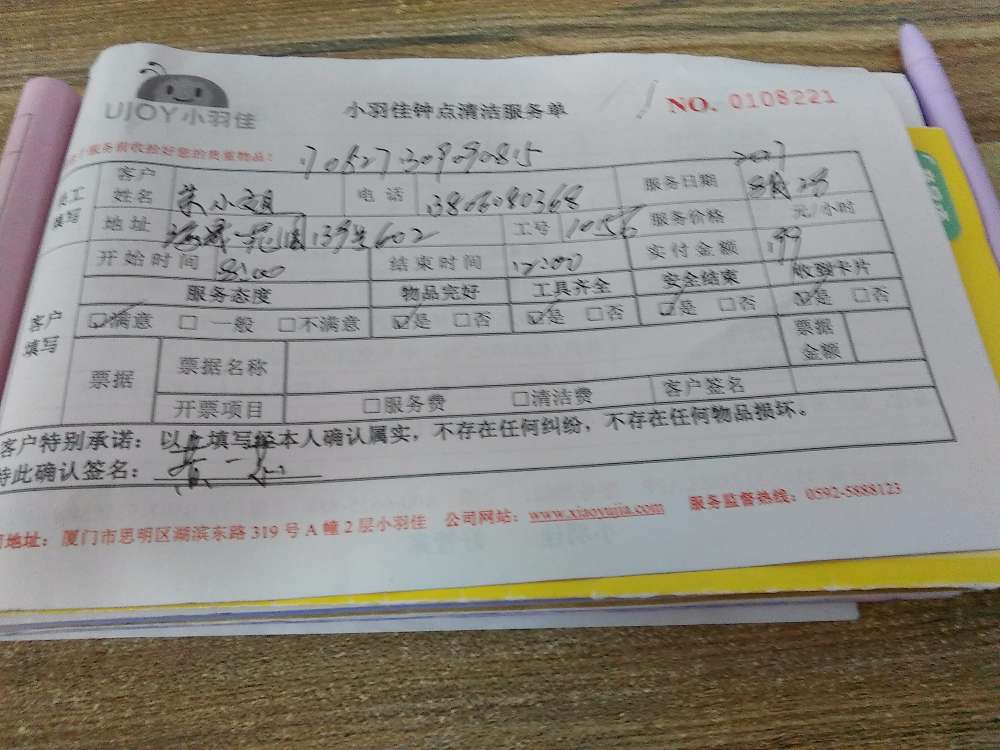 UJOY小羽佳
小羽佳钟点清洁服务单
NO. 0108221
服务前收拾好您的贵重物品!
170527309090815
员工填写 客户姓名 小姐 电话 服务日期
地址 139号602 工号 1056 服务价格 元/小时
开始时间 8:00 结束时间 12:00 实付金额 199
客户填写 服务态度 物品完好 工具齐全 安全结束 收到卡片
☑满意 □一般 □不满意 ☑是 □否 ☑是 □否 ☑是 □否 ☑是 □否
票据 票据名称 票据金额
开票项目 □服务费 □清洁费 客户签名
客户特别承诺:以上填写经本人确认属实,不存在任何纠纷,不存在任何物品损坏。
特此确认签名:
地址:厦门市思明区湖滨东路319号A幢2层小羽佳 公司网站:www.xiaoyujia.com 服务监督热线:0592-5888123